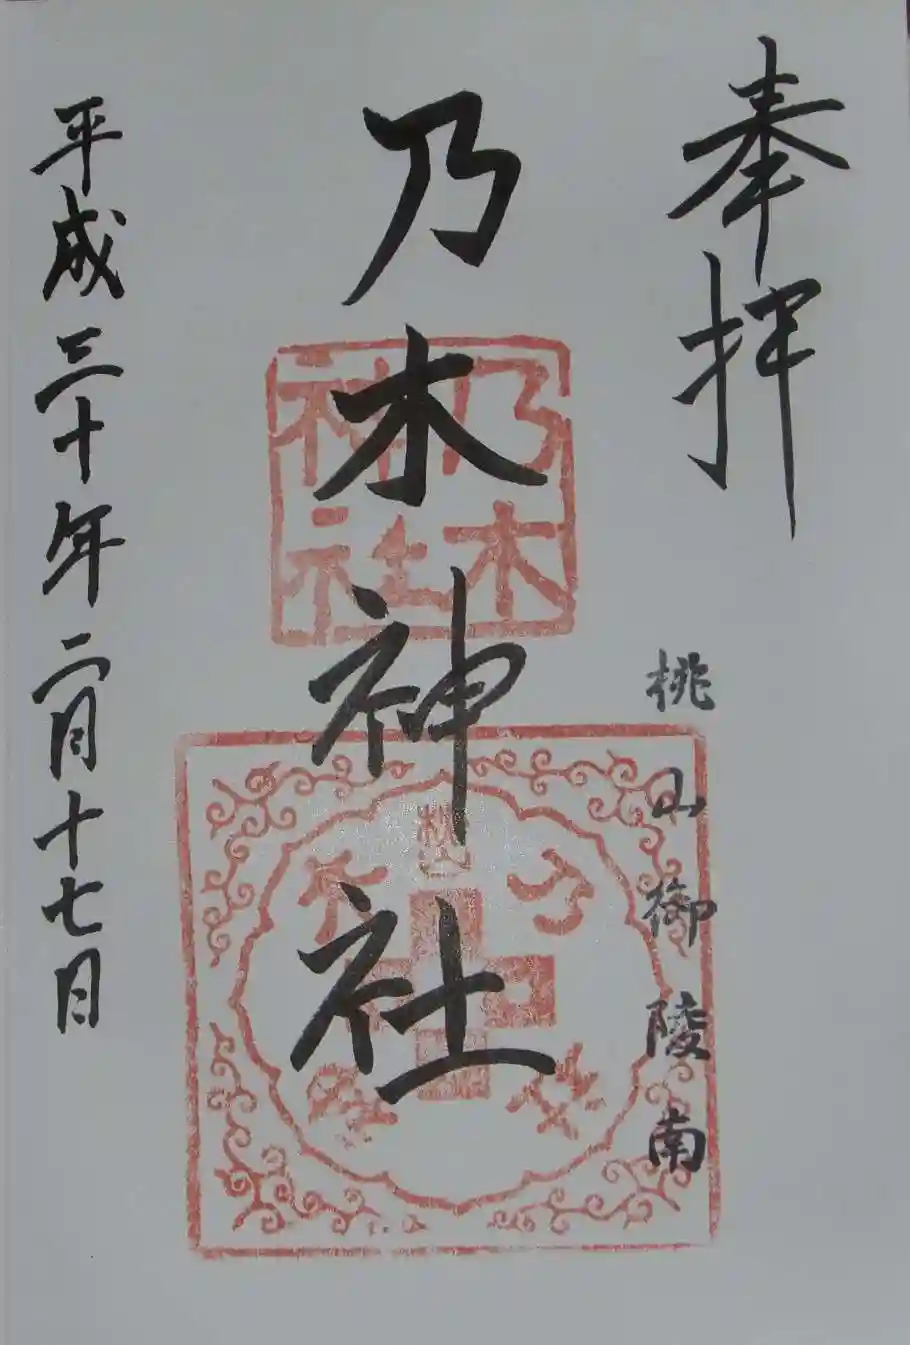 奉拝
桃山御陵南
乃木神社
乃木
神社
桃山
乃木
平成三十年二月十七日